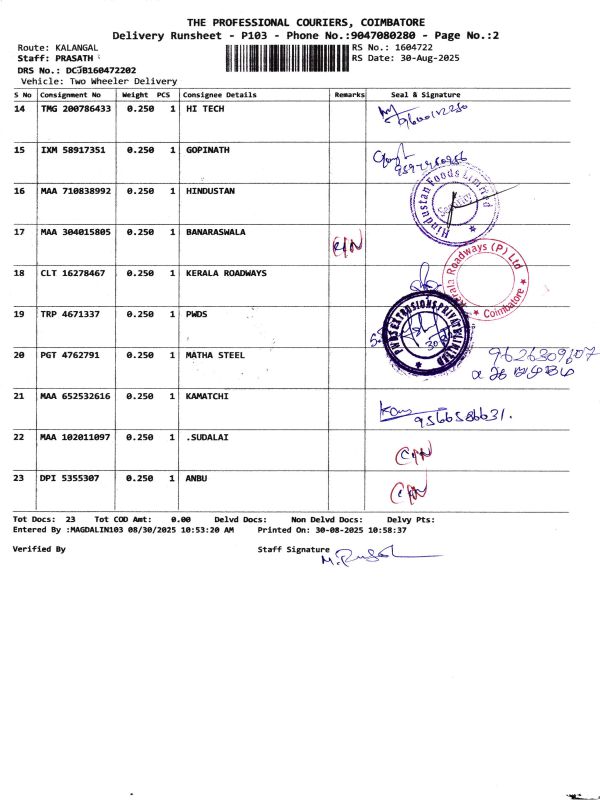 THE PROFESSIONAL COURIERS, COIMBATORE
Delivery Runsheet - P103 - Phone No.:9047080280 - Page No.:2
Route: KALANGAL RS No.: 1604722
Staff: PRASATH RS Date: 30-Aug-2025
DRS No.: DCJB160472202
Vehicle: Two Wheeler Delivery
S No Consignment No Weight PCS Consignee Details Remarks Seal & Signature
14 TMG 200786433 0.250 1 HI TECH
15 IXM 58917351 0.250 1 GOPINATH
16 MAA 710838992 0.250 1 HINDUSTAN
Hindustan Foods Limited
Security
17 MAA 304015805 0.250 1 BANARASWALA
18 CLT 16278467 0.250 1 KERALA ROADWAYS
Kerala Roadways (P) Ltd
Coimbatore
19 TRP 4671337 0.250 1 PWDS
PWDS EXTRUSIONS PRIVATE LIMITED
20 PGT 4762791 0.250 1 MATHA STEEL 9626309607
21 MAA 652532616 0.250 1 KAMATCHI
9566586631.
22 MAA 102011097 0.250 1 .SUDALAI
23 DPI 5355307 0.250 1 ANBU
Tot Docs: 23 Tot COD Amt: 0.00 Delvd Docs: Non Delvd Docs: Delvy Pts:
Entered By :MAGDALIN103 08/30/2025 10:53:20 AM Printed On: 30-08-2025 10:58:37
Verified By Staff Signature